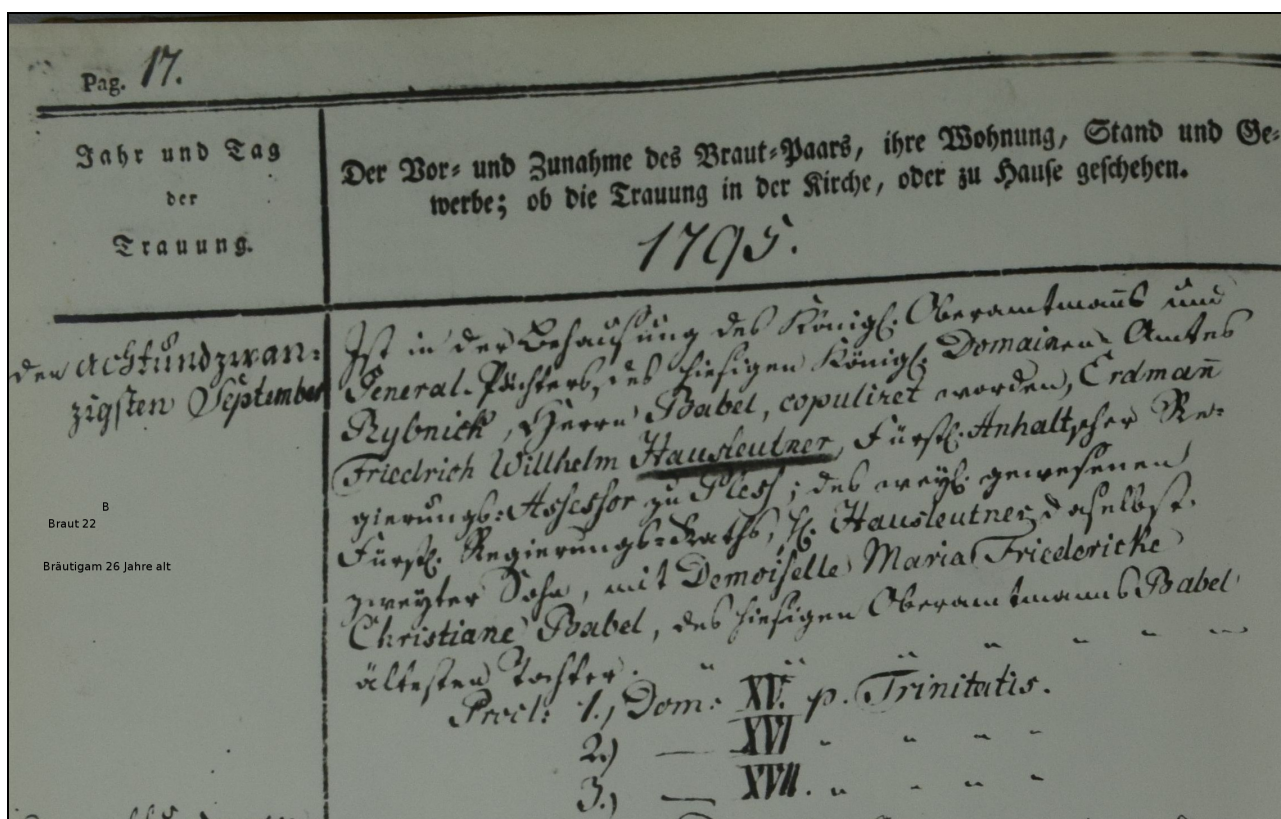 Pag. 17.
Jahr und Tag
der
Trauung.
Der Vor- und Zunahme des Braut-Paars, ihre Wohnung, Stand und Ge-
werbe; ob die Trauung in der Kirche, oder zu Hause geschehen.
1795.
den achtundzwan-
zigsten September
B
Braut 22
Bräutigam 26 Jahre alt
Ist in der Behausung des Königl. Oberamtmanns und
General-Pächters, des hiesigen Königl. Domainen-Amtes
Rybnick, Herrn Babel, copuliret worden, Erdmañ
Friedrich Willhelm Hausleutner, Fürstl. Anhaltscher Re-
gierungs-Assessor zu Pless; des weyl. gewesenen
Fürstl. Regierungs-Raths, H. Hausleutner, daselbst,
zweyter Sohn, mit Demoiselle Maria Friedericke
Christiane Babel, des hiesigen Oberamtmanns Babel
ältesten Tochter.
Procl: 1.) Dom: XV. p. Trinitatis.
2.) — XVI " " " "
3.) — XVII. " " " "